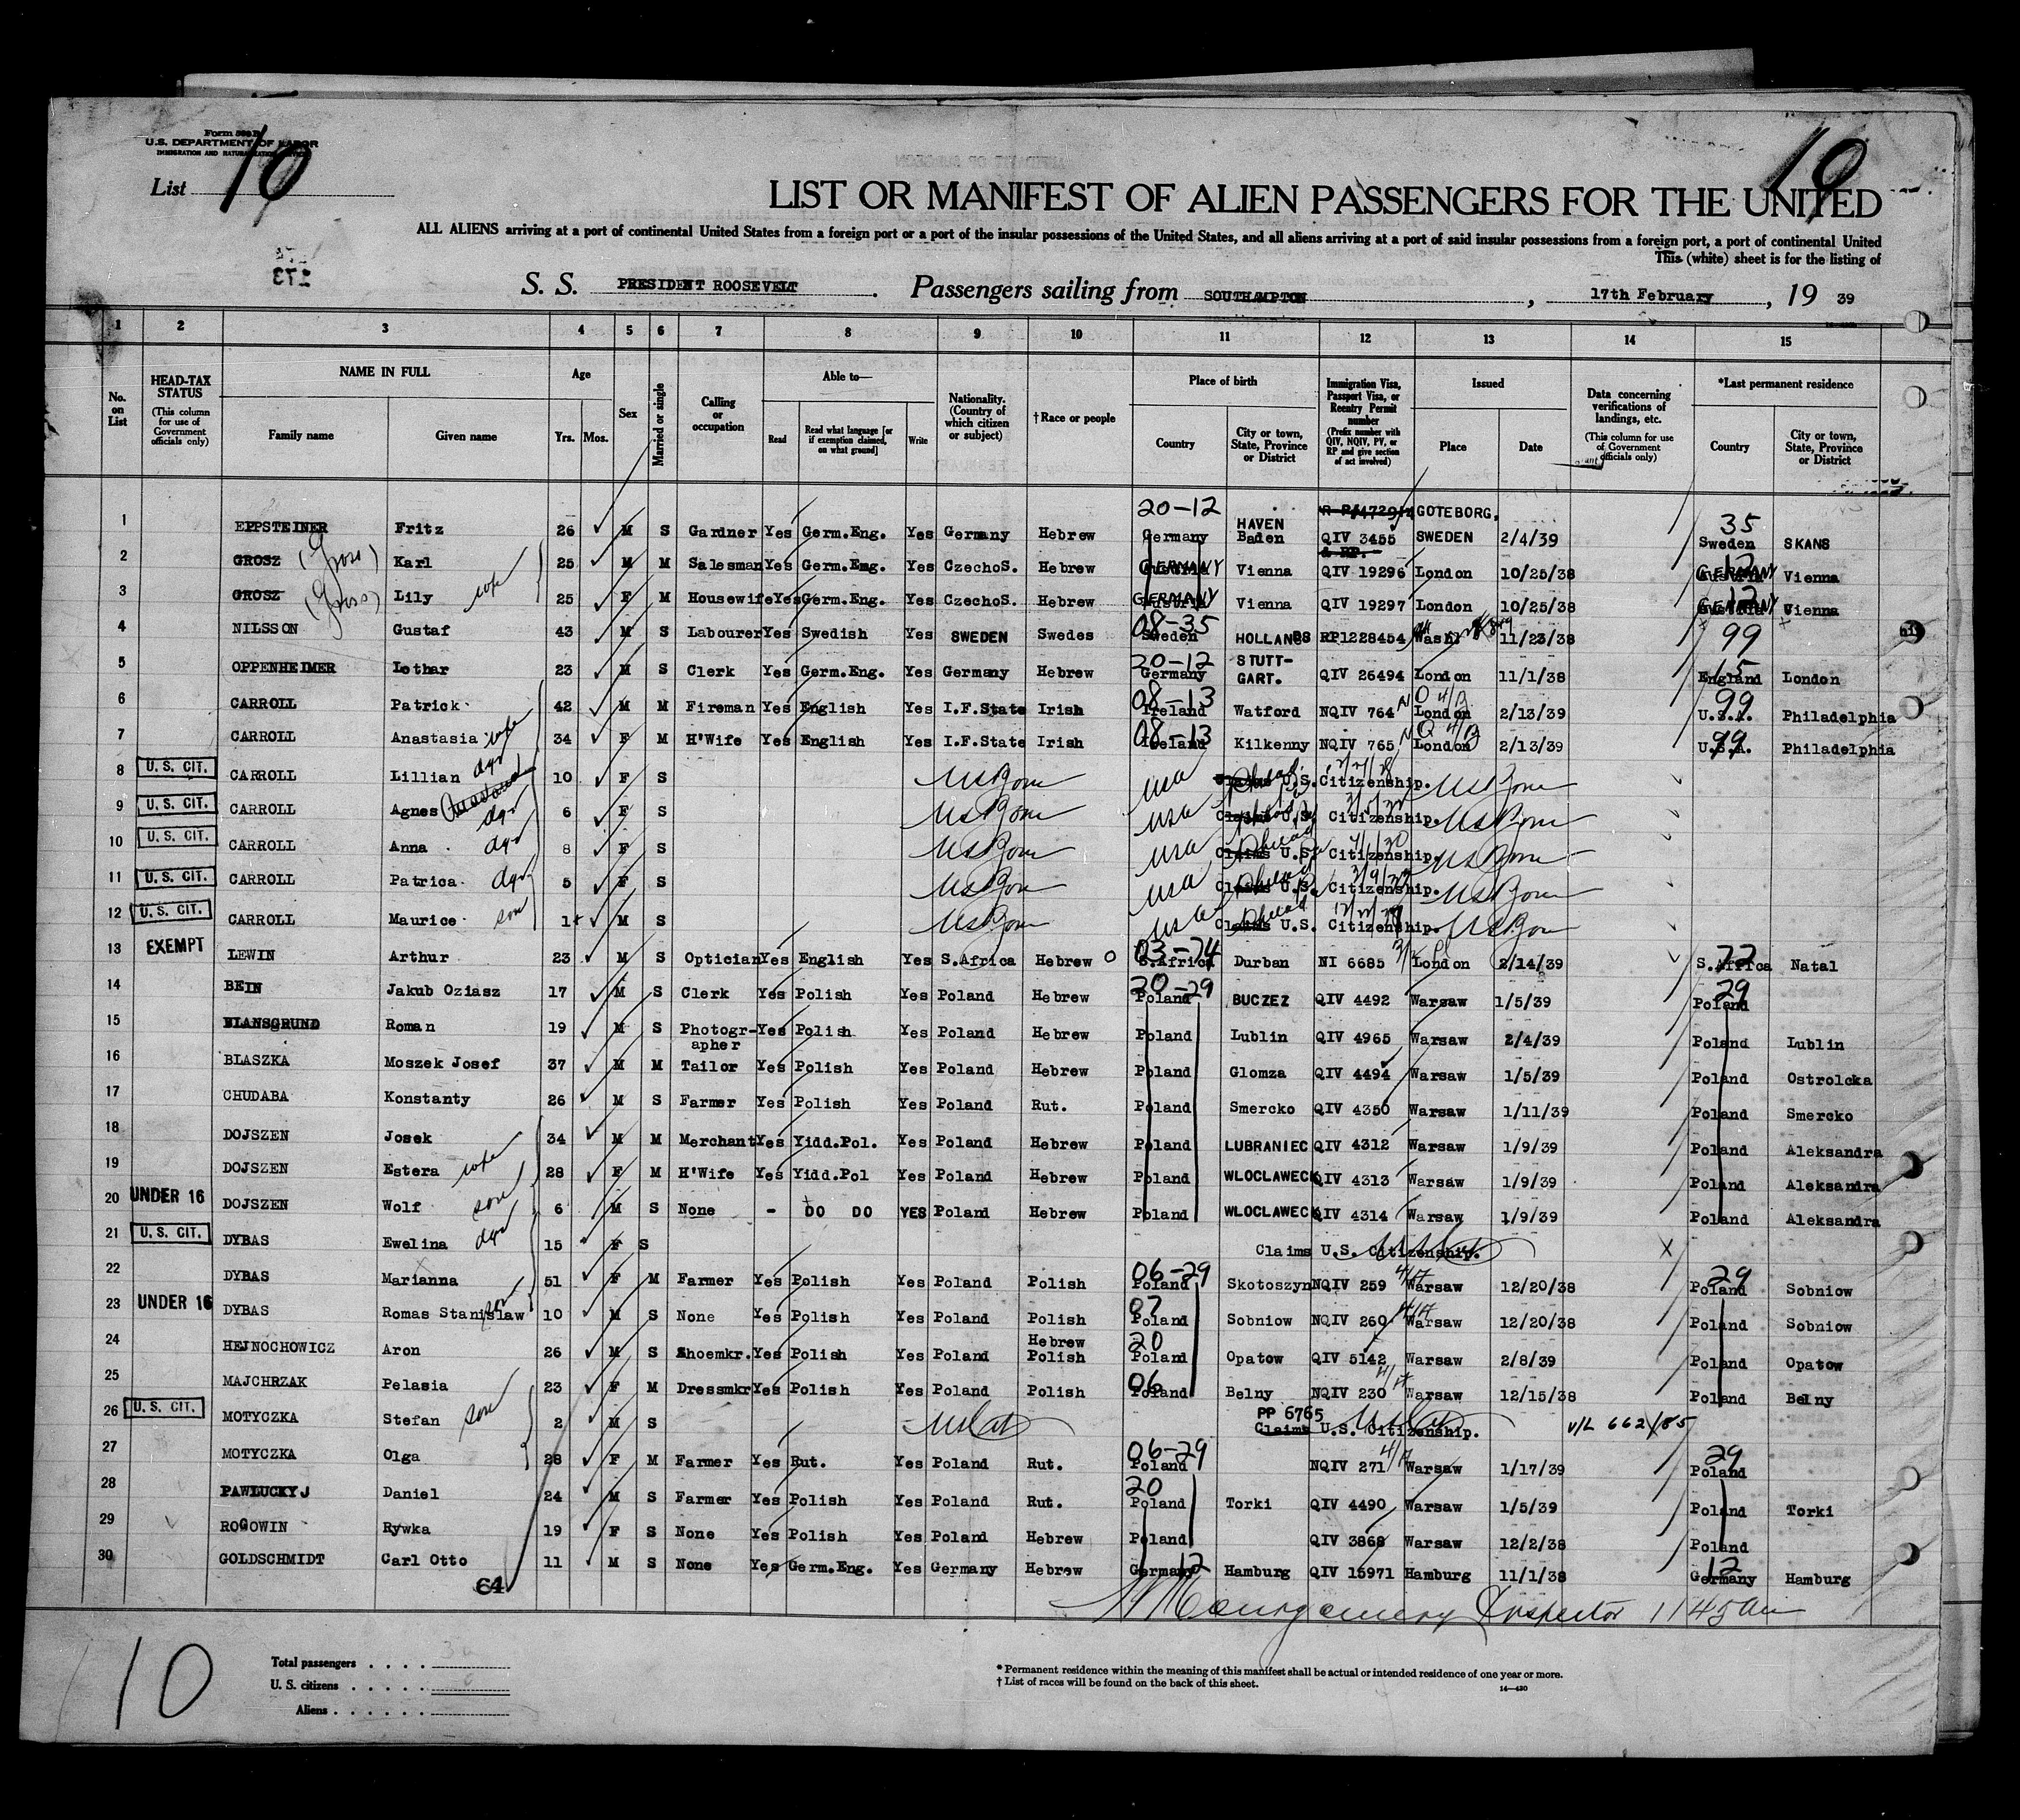 Form 500 B
U.S. DEPARTMENT OF LABOR
IMMIGRATION AND NATURALIZATION SERVICE
List 10
10
LIST OR MANIFEST OF ALIEN PASSENGERS FOR THE UNITED
ALL ALIENS arriving at a port of continental United States from a foreign port or a port of the insular possessions of the United States, and all aliens arriving at a port of said insular possessions from a foreign port, a port of continental United
This (white) sheet is for the listing of
273
S. S. PRESIDENT ROOSEVELT . Passengers sailing from SOUTHAMPTON , 17th February , 19 39
1 2 3 4 5 6 7 8 9 10 11 12 13 14 15
No. on List
HEAD-TAX STATUS (This column for use of Government officials only)
NAME IN FULL
Family name Given name
Age
Yrs. Mos.
Sex
Married or single
Calling or occupation
Able to—
Read Read what language [or if exemption claimed, on what ground] Write
Nationality. (Country of which citizen or subject)
†Race or people
Place of birth
Country City or town, State, Province or District
Immigration Visa, Passport Visa, or Reentry Permit number (Prefix number with QIV, NQIV, PV, or RP and give section of act involved)
Issued
Place Date
Data concerning verifications of landings, etc. (This column for use of Government officials only)
*Last permanent residence
Country City or town, State, Province or District
1 EPPSTEINER Fritz 26 M S Gardner Yes Germ.Eng. Yes Germany Hebrew 20-12 Germany HAVEN Baden QIV 3455 GOTEBORG, SWEDEN 2/4/39 35 Sweden SKANS
2 GROSZ (Gross) Karl 25 M M Salesman Yes Germ.Eng. Yes CzechoS. Hebrew GERMANY Vienna QIV 19296 London 10/25/38 GERMANY 12 Vienna
3 GROSZ (Gross) Lily wife 25 F M Housewife Yes Germ.Eng. Yes CzechoS. Hebrew GERMANY Vienna QIV 19297 London 10/25/38 GERMANY 12 Vienna
4 NILSSON Gustaf 43 M S Labourer Yes Swedish Yes SWEDEN Swedes 08-35 Sweden HOLLANDS RP1228454 Wash 11/23/38 99
5 OPPENHEIMER Lothar 23 M S Clerk Yes Germ.Eng. Yes Germany Hebrew 20-12 Germany STUTT-GART. QIV 26494 London 11/1/38 15 England London
6 CARROLL Patrick 42 M M Fireman Yes English Yes I.F.State Irish 08-13 Ireland Watford NQIV 764 NO 4/13 London 2/13/39 99 U.S.A. Philadelphia
7 CARROLL Anastasia wife 34 F M H'Wife Yes English Yes I.F.State Irish 08-13 Ireland Kilkenny NQIV 765 London 2/13/39 99 U.S.A. Philadelphia
8 U. S. CIT. CARROLL Lillian dgr 10 F S US Born USA Claims U.S. Citizenship. US Born
9 U. S. CIT. CARROLL Agnes dgr 6 F S US Born USA Claims U.S. Citizenship. US Born
10 U. S. CIT. CARROLL Anna dgr 8 F S US Born USA Claims U.S. Citizenship. US Born
11 U. S. CIT. CARROLL Patrica dgr 5 F S US Born USA Claims U.S. Citizenship. US Born
12 U. S. CIT. CARROLL Maurice son 1 M S US Born USA Claims U.S. Citizenship. US Born
13 EXEMPT LEWIN Arthur 23 M S Optician Yes English Yes S.Africa Hebrew 03-74 S.Africa Durban NI 6685 London 2/14/39 72 S.Africa Natal
14 BEIN Jakub Oziasz 17 M S Clerk Yes Polish Yes Poland Hebrew 20-29 Poland BUCZEZ QIV 4492 Warsaw 1/5/39 29 Poland
15 Roman 19 M S Photographer Yes Polish Yes Poland Hebrew Poland Lublin QIV 4965 Warsaw 2/4/39 Poland Lublin
16 BLASZKA Moszek Josef 37 M M Tailor Yes Polish Yes Poland Hebrew Poland Glomza QIV 4494 Warsaw 1/5/39 Poland Ostrolcka
17 CHUDABA Konstanty 26 M S Farmer Yes Polish Yes Poland Rut. Poland Smercko QIV 4350 Warsaw 1/11/39 Poland Smercko
18 DOJSZEN Josek 34 M M Merchant Yes Yidd.Pol. Yes Poland Hebrew Poland LUBRANIEC QIV 4312 Warsaw 1/9/39 Poland Aleksandra
19 DOJSZEN Estera wife 28 F M H'Wife Yes Yidd.Pol Yes Poland Hebrew Poland WLOCLAWECK QIV 4313 Warsaw 1/9/39 Poland Aleksandra
20 UNDER 16 DOJSZEN Wolf son 6 M S None - DO DO YES Poland Hebrew Poland WLOCLAWECK QIV 4314 Warsaw 1/9/39 Poland Aleksandra
21 U. S. CIT. DYBAS Ewelina dgr 15 F S Claims U.S. Citizenship. X
22 DYBAS Marianna 51 F M Farmer Yes Polish Yes Poland Polish 06-29 Poland Skotoszyn NQIV 259 4/17 Warsaw 12/20/38 29 Poland Sobniow
23 UNDER 16 DYBAS Romas Stanislaw son 10 M S None Yes Polish Yes Poland Polish 07 Poland Sobniow NQIV 260 4/17 Warsaw 12/20/38 Poland Sobniow
24 HEJNOCHOWICZ Aron 26 M S Shoemkr. Yes Polish Yes Poland Hebrew Polish 20 Poland Opatow QIV 5142 Warsaw 2/8/39 Poland Opatow
25 MAJCHRZAK Pelasia 23 F M Dressmkr Yes Polish Yes Poland Polish 06 Poland Belny NQIV 230 4/17 Warsaw 12/15/38 Poland Belny
26 U. S. CIT. MOTYCZKA Stefan son 2 M S US Cit PP 6765 Claims U.S. Citizenship. V/L 662/85
27 MOTYCZKA Olga 28 F M Farmer Yes Rut. Yes Poland Rut. 06-29 Poland NQIV 271 4/17 Warsaw 1/17/39 29 Poland
28 PAWLUCKYJ Daniel 24 M S Farmer Yes Polish Yes Poland Rut. 20 Poland Torki QIV 4490 Warsaw 1/5/39 Poland Torki
29 ROGOWIN Rywka 19 F S None Yes Polish Yes Poland Hebrew Poland QIV 3868 Warsaw 12/2/38 Poland
30 GOLDSCHMIDT Carl Otto 11 M S None Yes Germ.Eng. Yes Germany Hebrew Germany 12 Hamburg QIV 15971 Hamburg 11/1/38 12 Germany Hamburg
64
Montgomery Inspector 11 45 am
10
Total passengers . . . . 30
U. S. citizens . . . . .
Aliens . . . . . .
* Permanent residence within the meaning of this manifest shall be actual or intended residence of one year or more.
† List of races will be found on the back of this sheet.
14—430